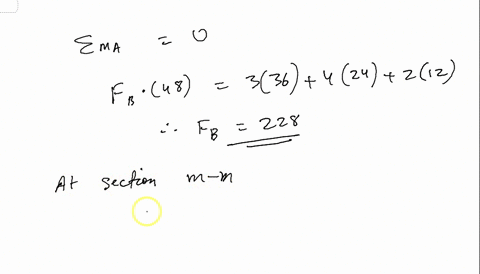 ΣMA = 0
FB · (48) = 3(36) + 4(24) + 2(12)
∴ FB = 228
At section m-n